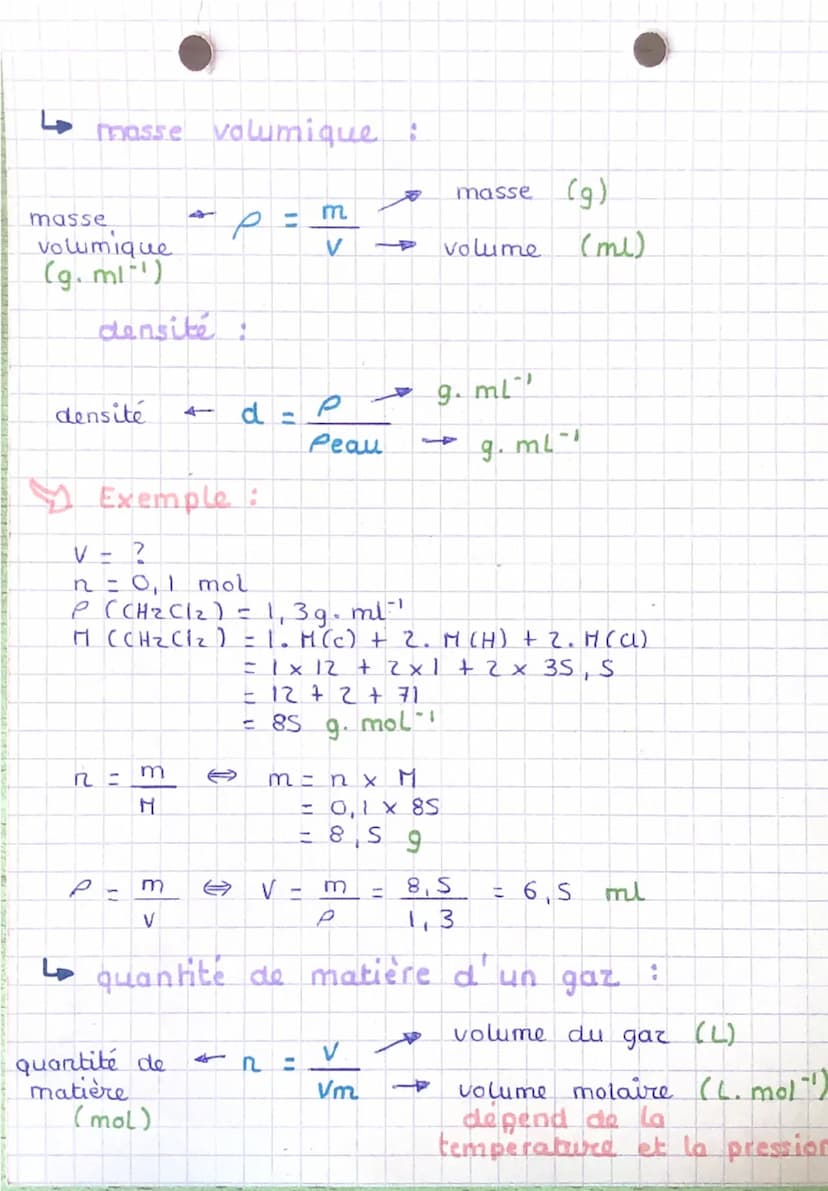 ↳ masse volumique :
masse volumique (g. ml⁻¹) ← ρ = m / V → masse (g) → volume (ml)
densité :
densité ← d = ρ / ρeau → g. mL⁻¹ → g. mL⁻¹
Exemple :
V = ?
n = 0,1 mol
ρ (CH2Cl2) = 1,3 g. ml⁻¹
M (CH2Cl2) = 1. M(C) + 2. M(H) + 2. M(Cl)
= 1 x 12 + 2 x 1 + 2 x 35,5
= 12 + 2 + 71
= 85 g. moL⁻¹
n = m / M ⇔ m = n x M
= 0,1 x 85
= 8,5 g
ρ = m / V ⇔ V = m / ρ = 8,5 / 1,3 = 6,5 ml
↳ quantité de matière d'un gaz :
quantité de matière (mol) ← n = V / Vm → volume du gaz (L) → volume molaire (L. mol⁻¹)
dépend de la
température et la pression